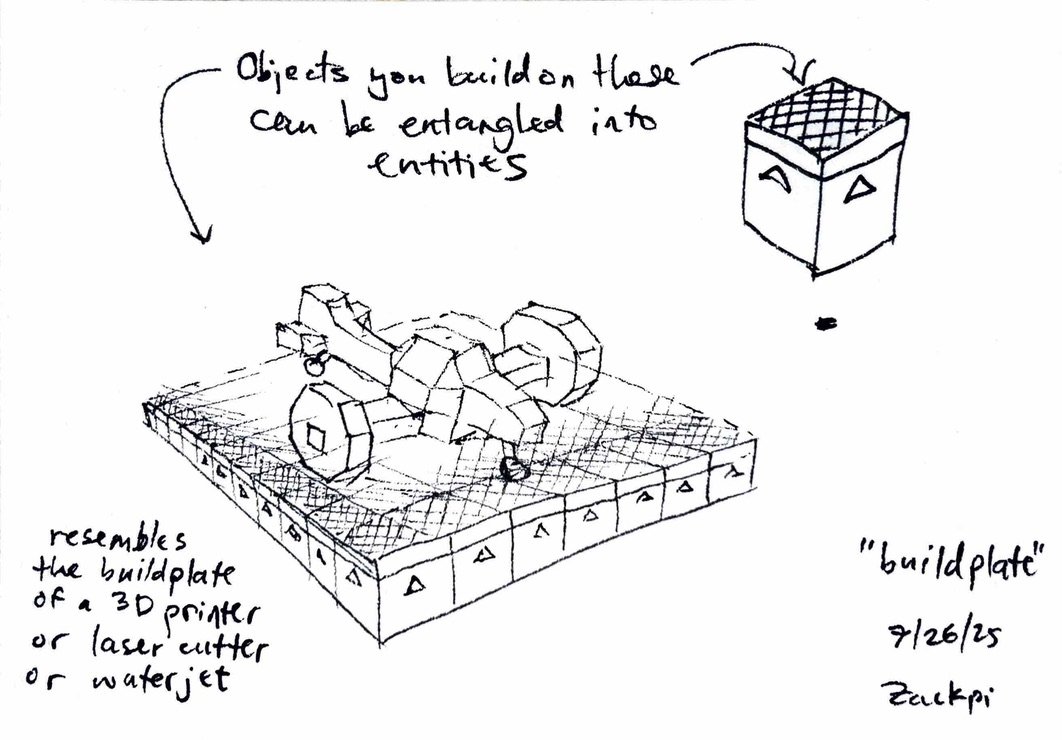 Objects you build on these
can be entangled into
entities
resembles
the buildplate
of a 3D printer
or laser cutter
or waterjet
"buildplate"
7/26/25
Zackpi